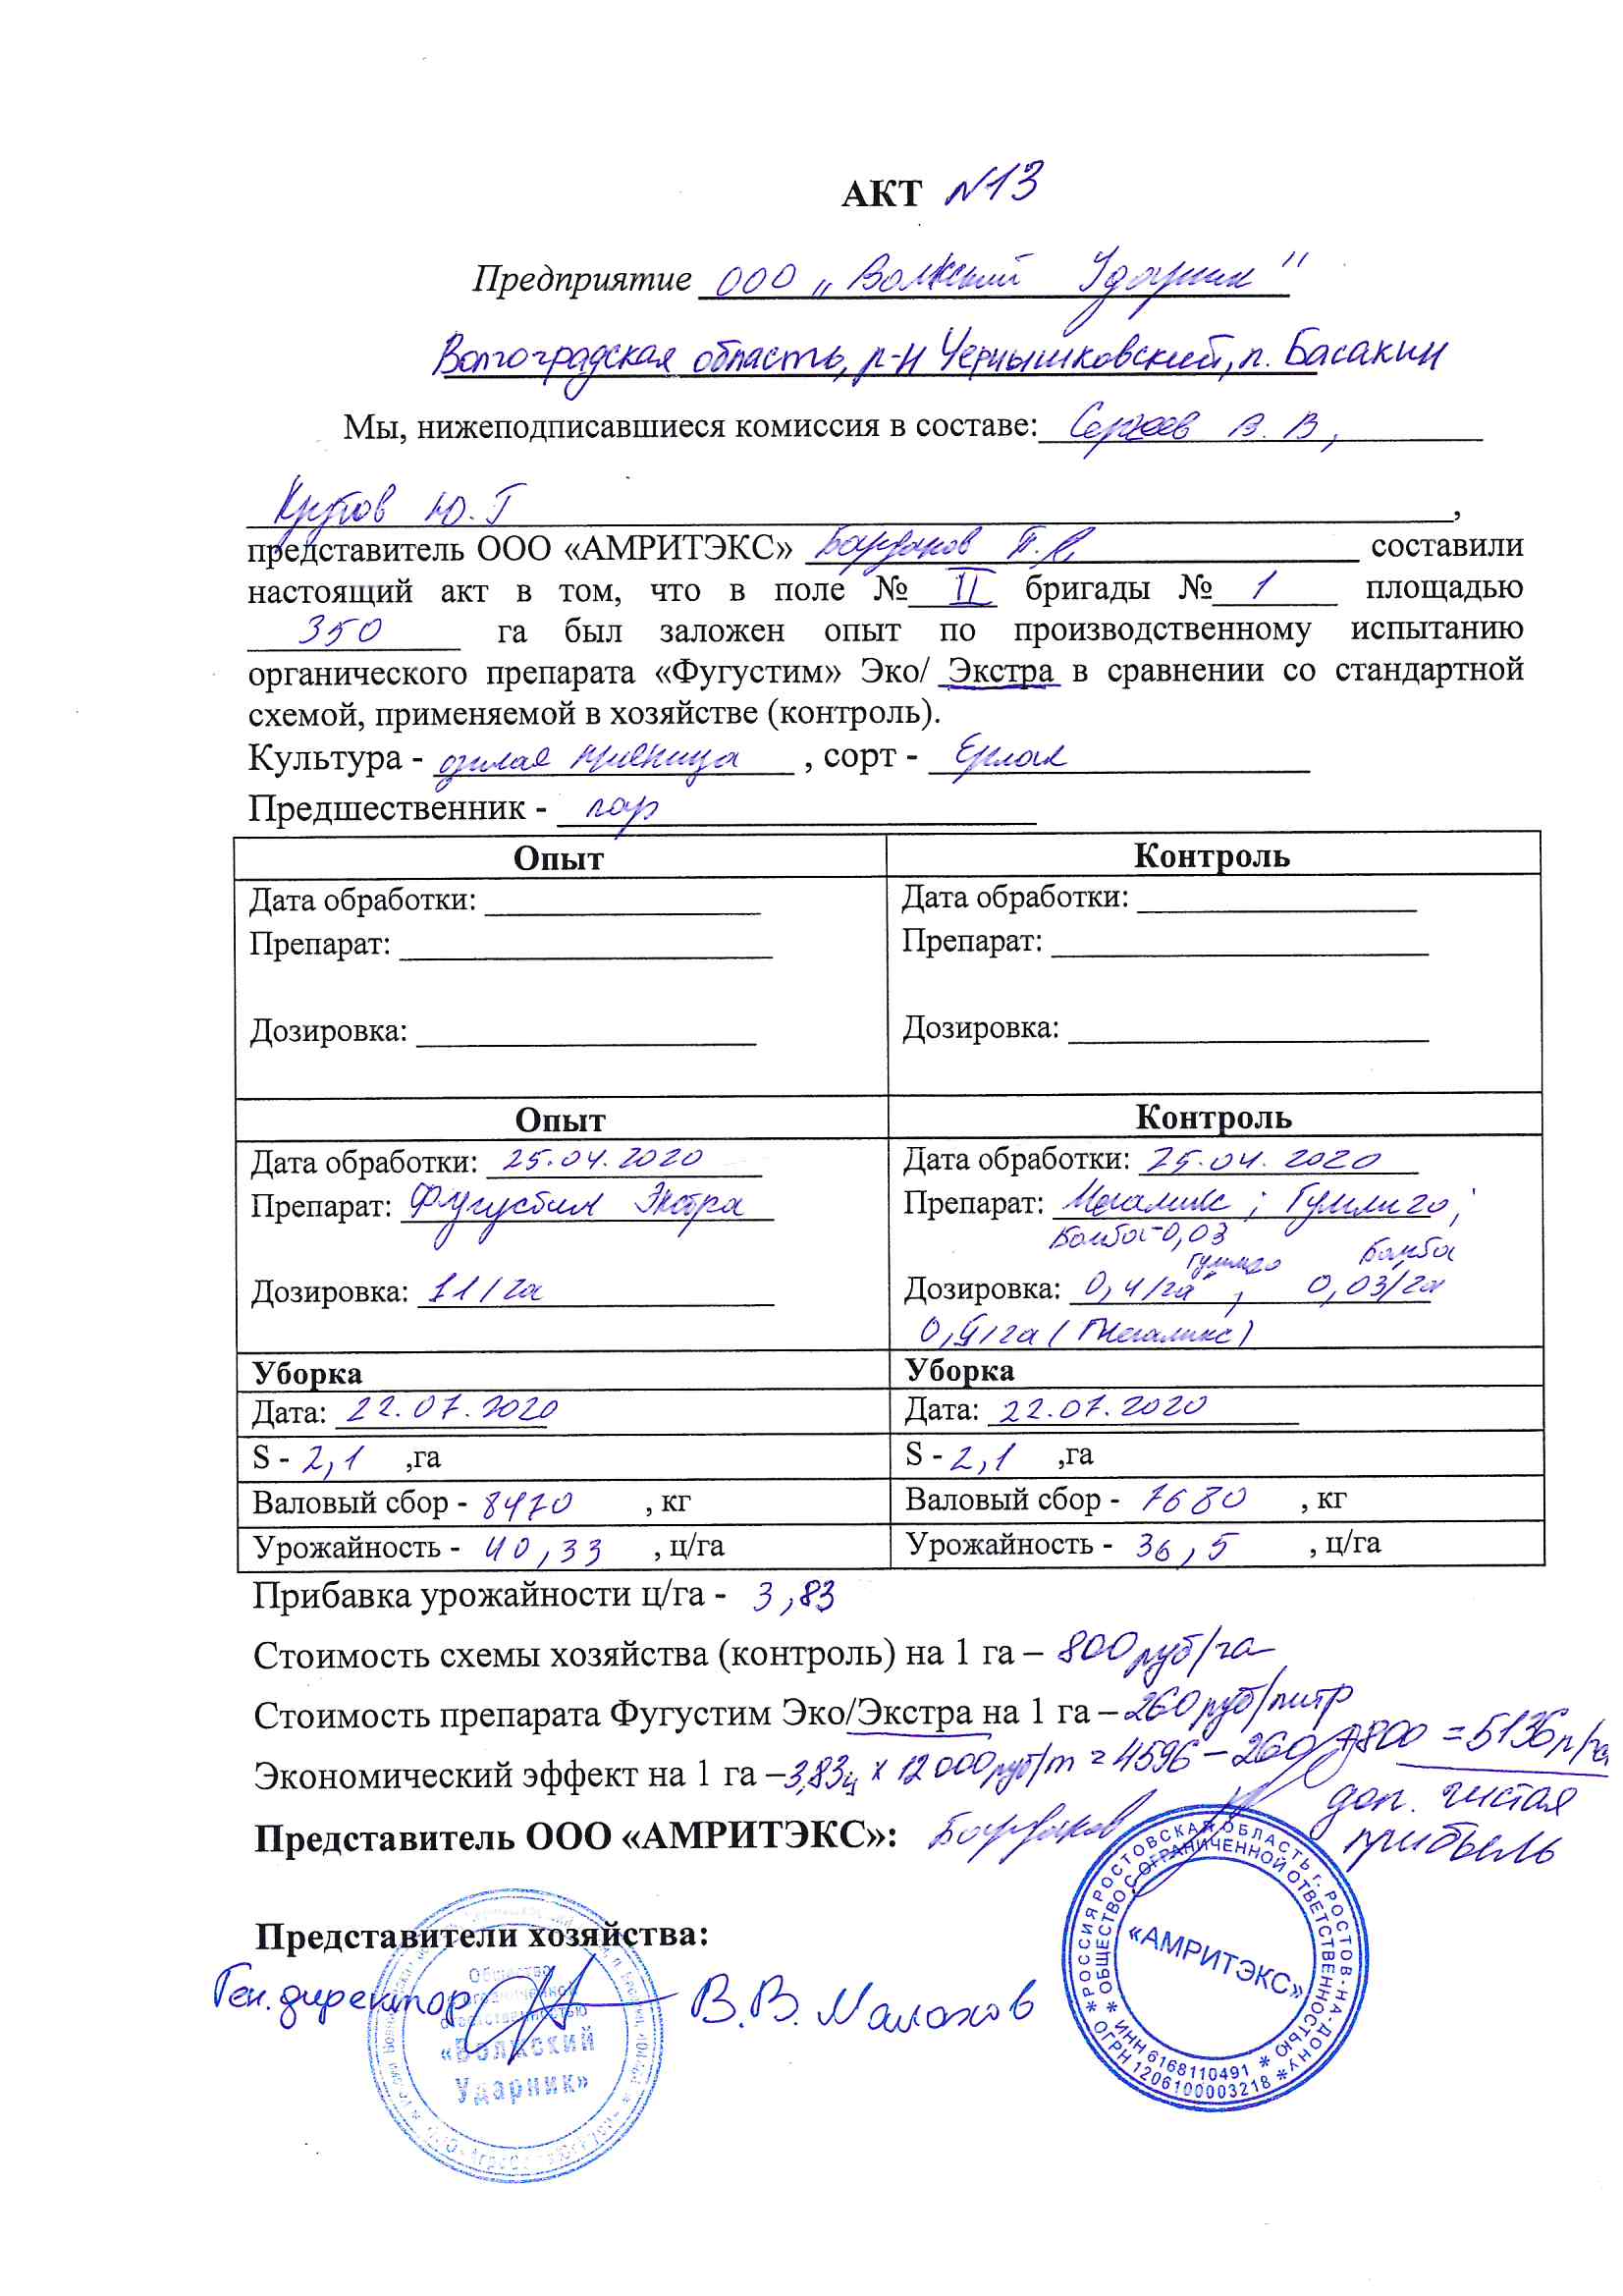 АКТ №13
Предприятие ООО „Волжский Ударник"
Волгоградская область, р-н Чернышковский, п. Басакин
Мы, нижеподписавшиеся комиссия в составе: Сергеев В. В,
Крутов Ю.Г ,
представитель ООО «АМРИТЭКС» составили
настоящий акт в том, что в поле № II бригады № 1 площадью
350 га был заложен опыт по производственному испытанию
органического препарата «Фугустим» Эко/ Экстра в сравнении со стандартной
схемой, применяемой в хозяйстве (контроль).
Культура - озимая пшеница , сорт - Ермак
Предшественник - пар
Опыт Контроль
Дата обработки: Дата обработки:
Препарат: Препарат:
Дозировка: Дозировка:
Опыт Контроль
Дата обработки: 25.04.2020 Дата обработки: 25.04.2020
Препарат: Фугустим Экстра Препарат: Мегамикс ; Гумиго ;
Бомба-0,03
Гумиго Бомба
Дозировка: 1л/га Дозировка: 0,4/га , 0,03/га
(Мегамикс)
Уборка Уборка
Дата: 22.07.2020 Дата: 22.07.2020
S - 2,1 ,га S - 2,1 ,га
Валовый сбор - 8470 , кг Валовый сбор - 7680 , кг
Урожайность - 40,33 , ц/га Урожайность - 36,5 , ц/га
Прибавка урожайности ц/га - 3,83
Стоимость схемы хозяйства (контроль) на 1 га – 800 руб/га
Стоимость препарата Фугустим Эко/Экстра на 1 га – 260 руб/литр
Экономический эффект на 1 га – 3,83ц х 12000 руб/т = 4596 - 260 + 800 = 5136 р/га
доп. чистая
прибыль
Представитель ООО «АМРИТЭКС»:
Представители хозяйства:
Ген. директор В.В. Малахов
Общество с ограниченной ответственностью
«Волжский
Ударник»
РОССИЯ РОСТОВСКАЯ ОБЛАСТЬ г. РОСТОВ-НА-ДОНУ
ОБЩЕСТВО С ОГРАНИЧЕННОЙ ОТВЕТСТВЕННОСТЬЮ
«АМРИТЭКС»
ИНН 6168110491
ОГРН 1206100003218